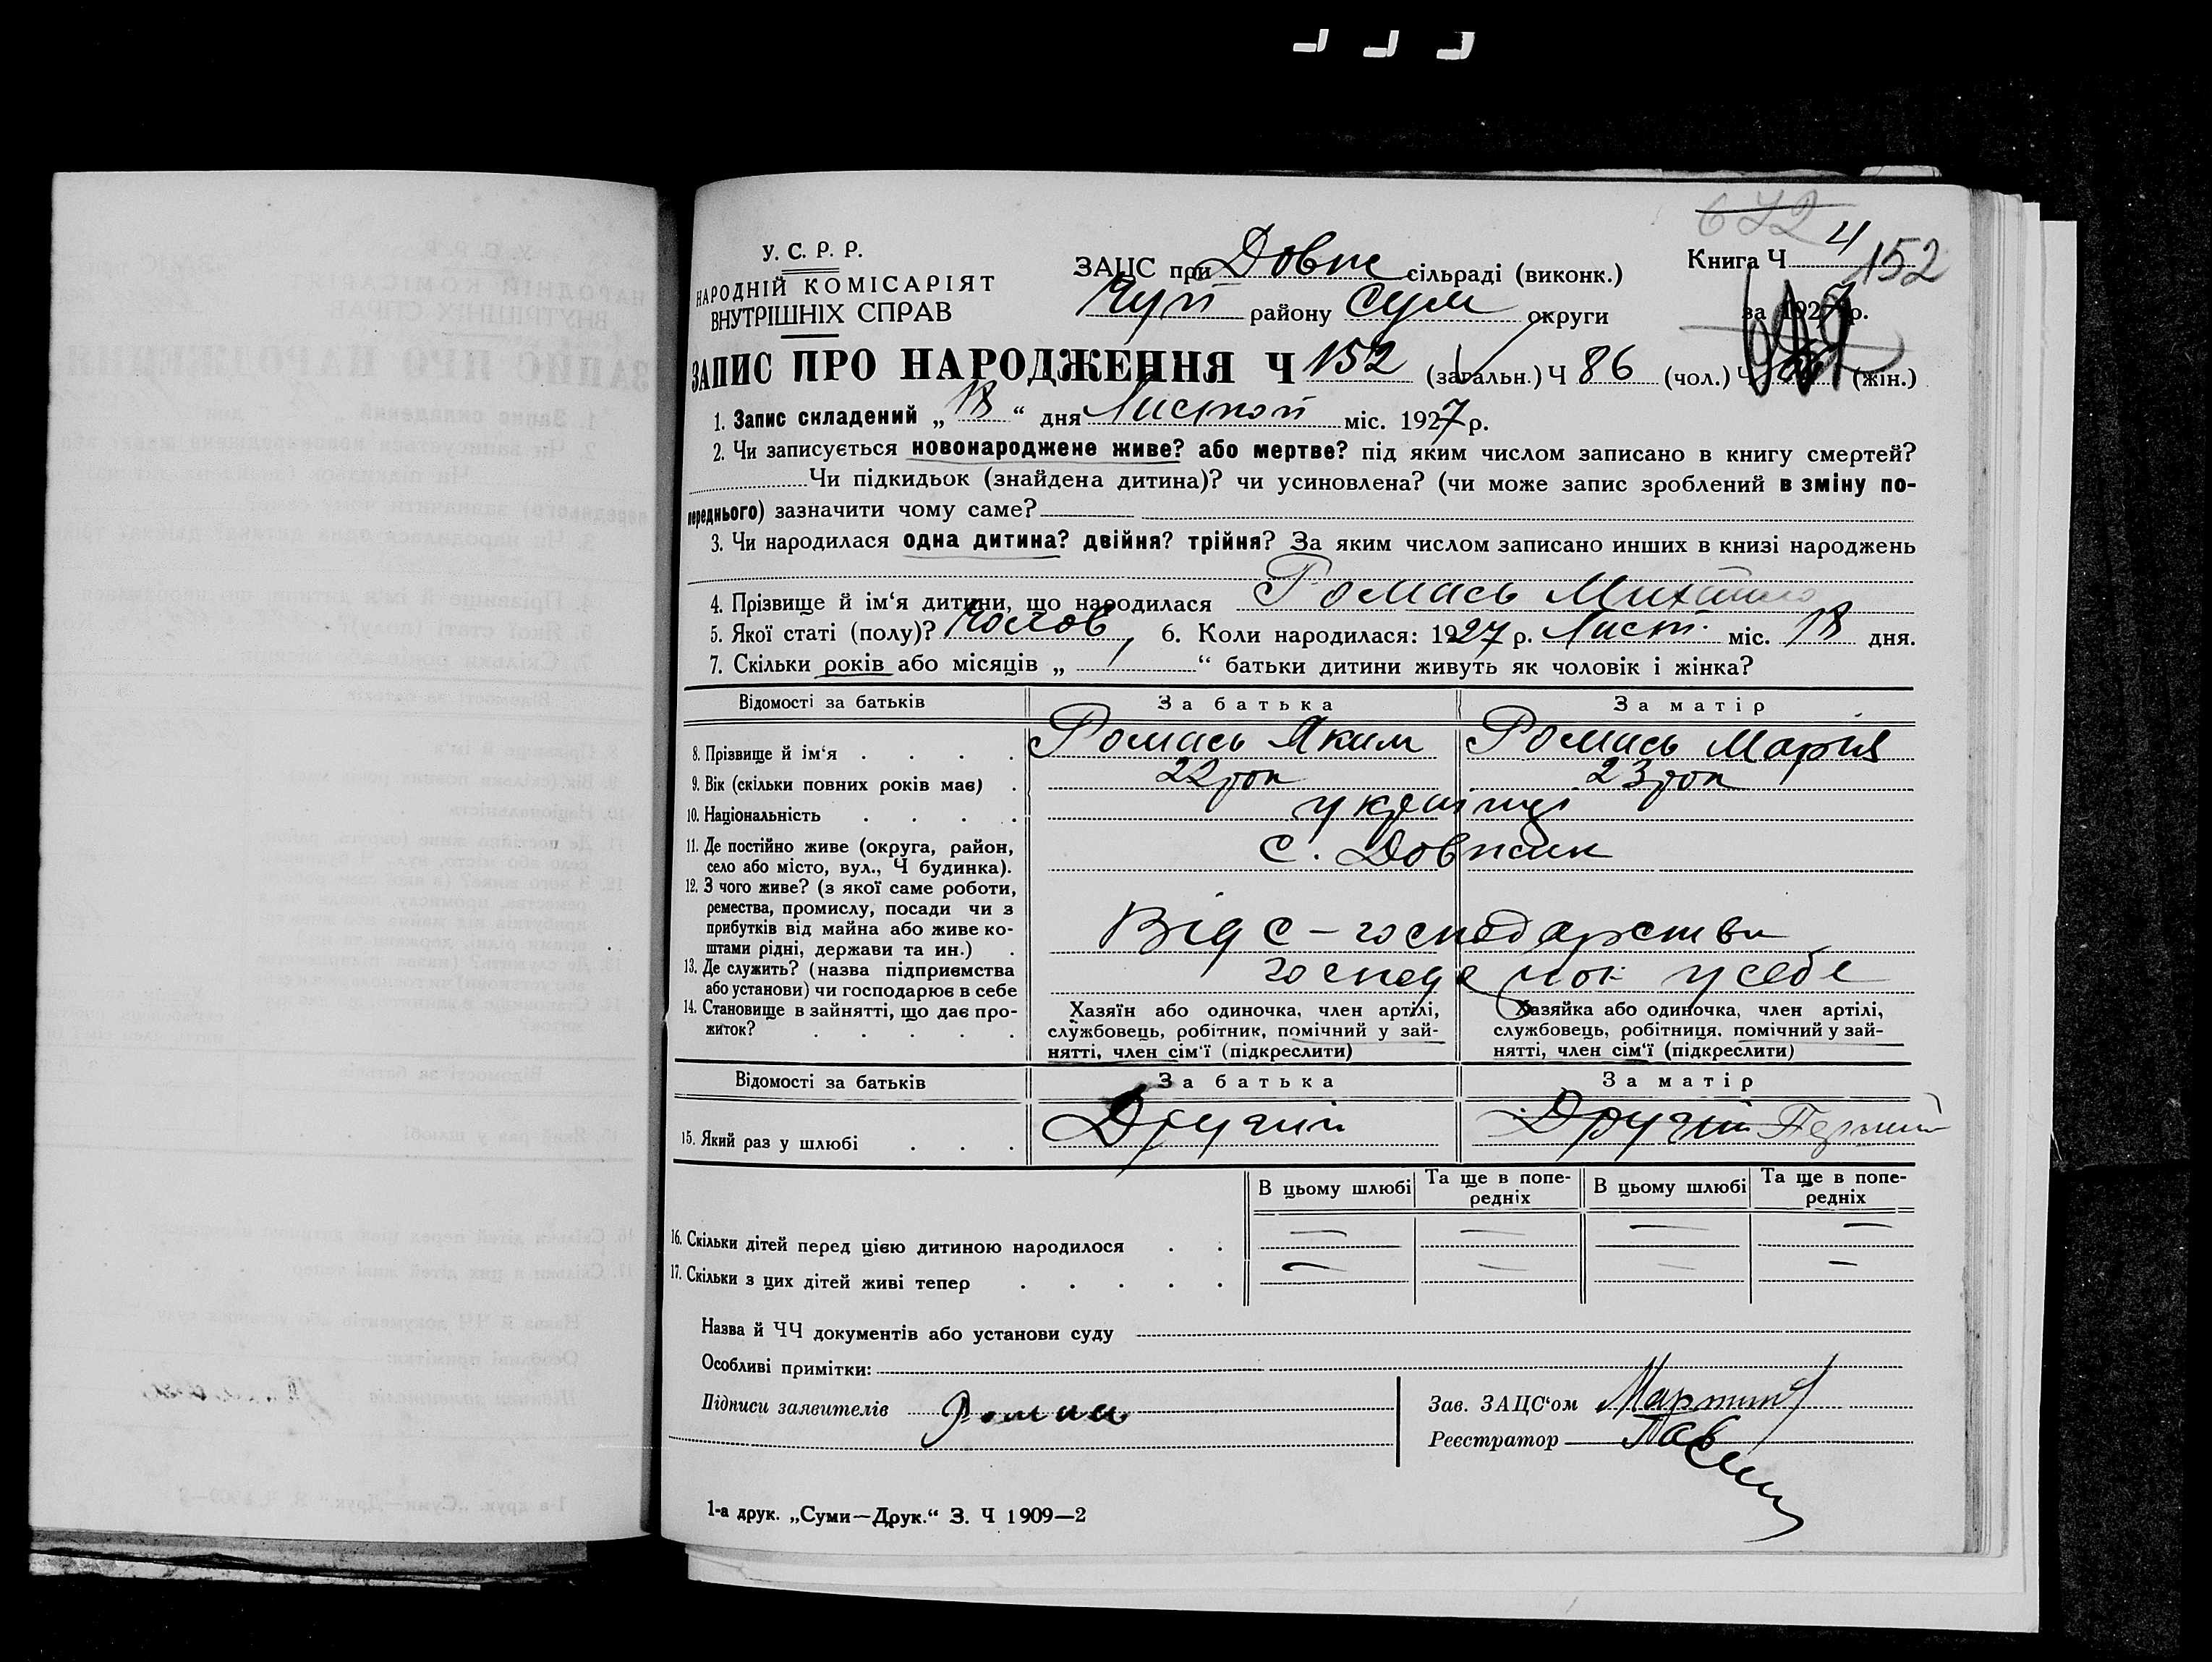 672
У. С. Р. Р.
НАРОДНІЙ КОМІСАРІЯТ
ВНУТРІШНІХ СПРАВ
ЗАЦС при Довж сільраді (виконк.)
Чуп району Сум округи
Книга Ч 4
152
за 1927 р.
ЗАПИС ПРО НАРОДЖЕННЯ Ч 152 (загальн.) Ч 86 (чол.) Ч (жін.)
1. Запис складений „ 18 “ дня Листоп міс. 1927 р.
2. Чи записується новонароджене живе? або мертве? під яким числом записано в книгу смертей?
Чи підкидьок (знайдена дитина)? чи усиновлена? (чи може запис зроблений в зміну по-
переднього) зазначити чому саме?
3. Чи народилася одна дитина? двійня? трійня? За яким числом записано инших в книзі народжень
4. Прізвище й ім‘я дитини, що народилася Ромась Михайло
5. Якої статі (полу)? Чолов 6. Коли народилася: 1927 р. Лист. міс. 18 дня.
7. Скільки років або місяців „ 1 “ батьки дитини живуть як чоловік і жінка?
Відомості за батьків За батька За матір
8. Прізвище й ім‘я . . . . Ромась Яким Ромась Мария
9. Вік (скільки повних років має) . 22 рок 23 рок
10. Національність . . . . українці
11. Де постійно живе (округа, район,
село або місто, вул., Ч будинка). с. Довжик
12. З чого живе? (з якої саме роботи,
ремества, промислу, посади чи з
прибутків від майна або живе ко-
штами рідні, держави та ин.) . Від с-господарства
13. Де служить? (назва підприємства
або установи) чи господарює в себе у себе
14. Становище в зайнятті, що дає про-
житок? . . . . .
Хазяїн або одиночка, член артілі,
службовець, робітник, помічний у зай-
нятті, член сім‘ї (підкреслити)
Хазяйка або одиночка, член артілі,
службовець, робітниця, помічний у зай-
нятті, член сім‘ї (підкреслити)
Відомості за батьків За батька За матір
15. Який раз у шлюбі . . . Другий Другий Перший
В цьому шлюбі Та ще в попе-
редніх В цьому шлюбі Та ще в попе-
редніх
16. Скільки дітей перед цією дитиною народилося . . — — — —
17. Скільки з цих дітей живі тепер . . . . . — — — —
Назва й ЧЧ документів або установи суду
Особливі примітки:
Підписи заявителів Ромась
Зав. ЗАЦС‘ом
Реєстратор
1-а друк. „Суми—Друк.“ З. Ч 1909—2